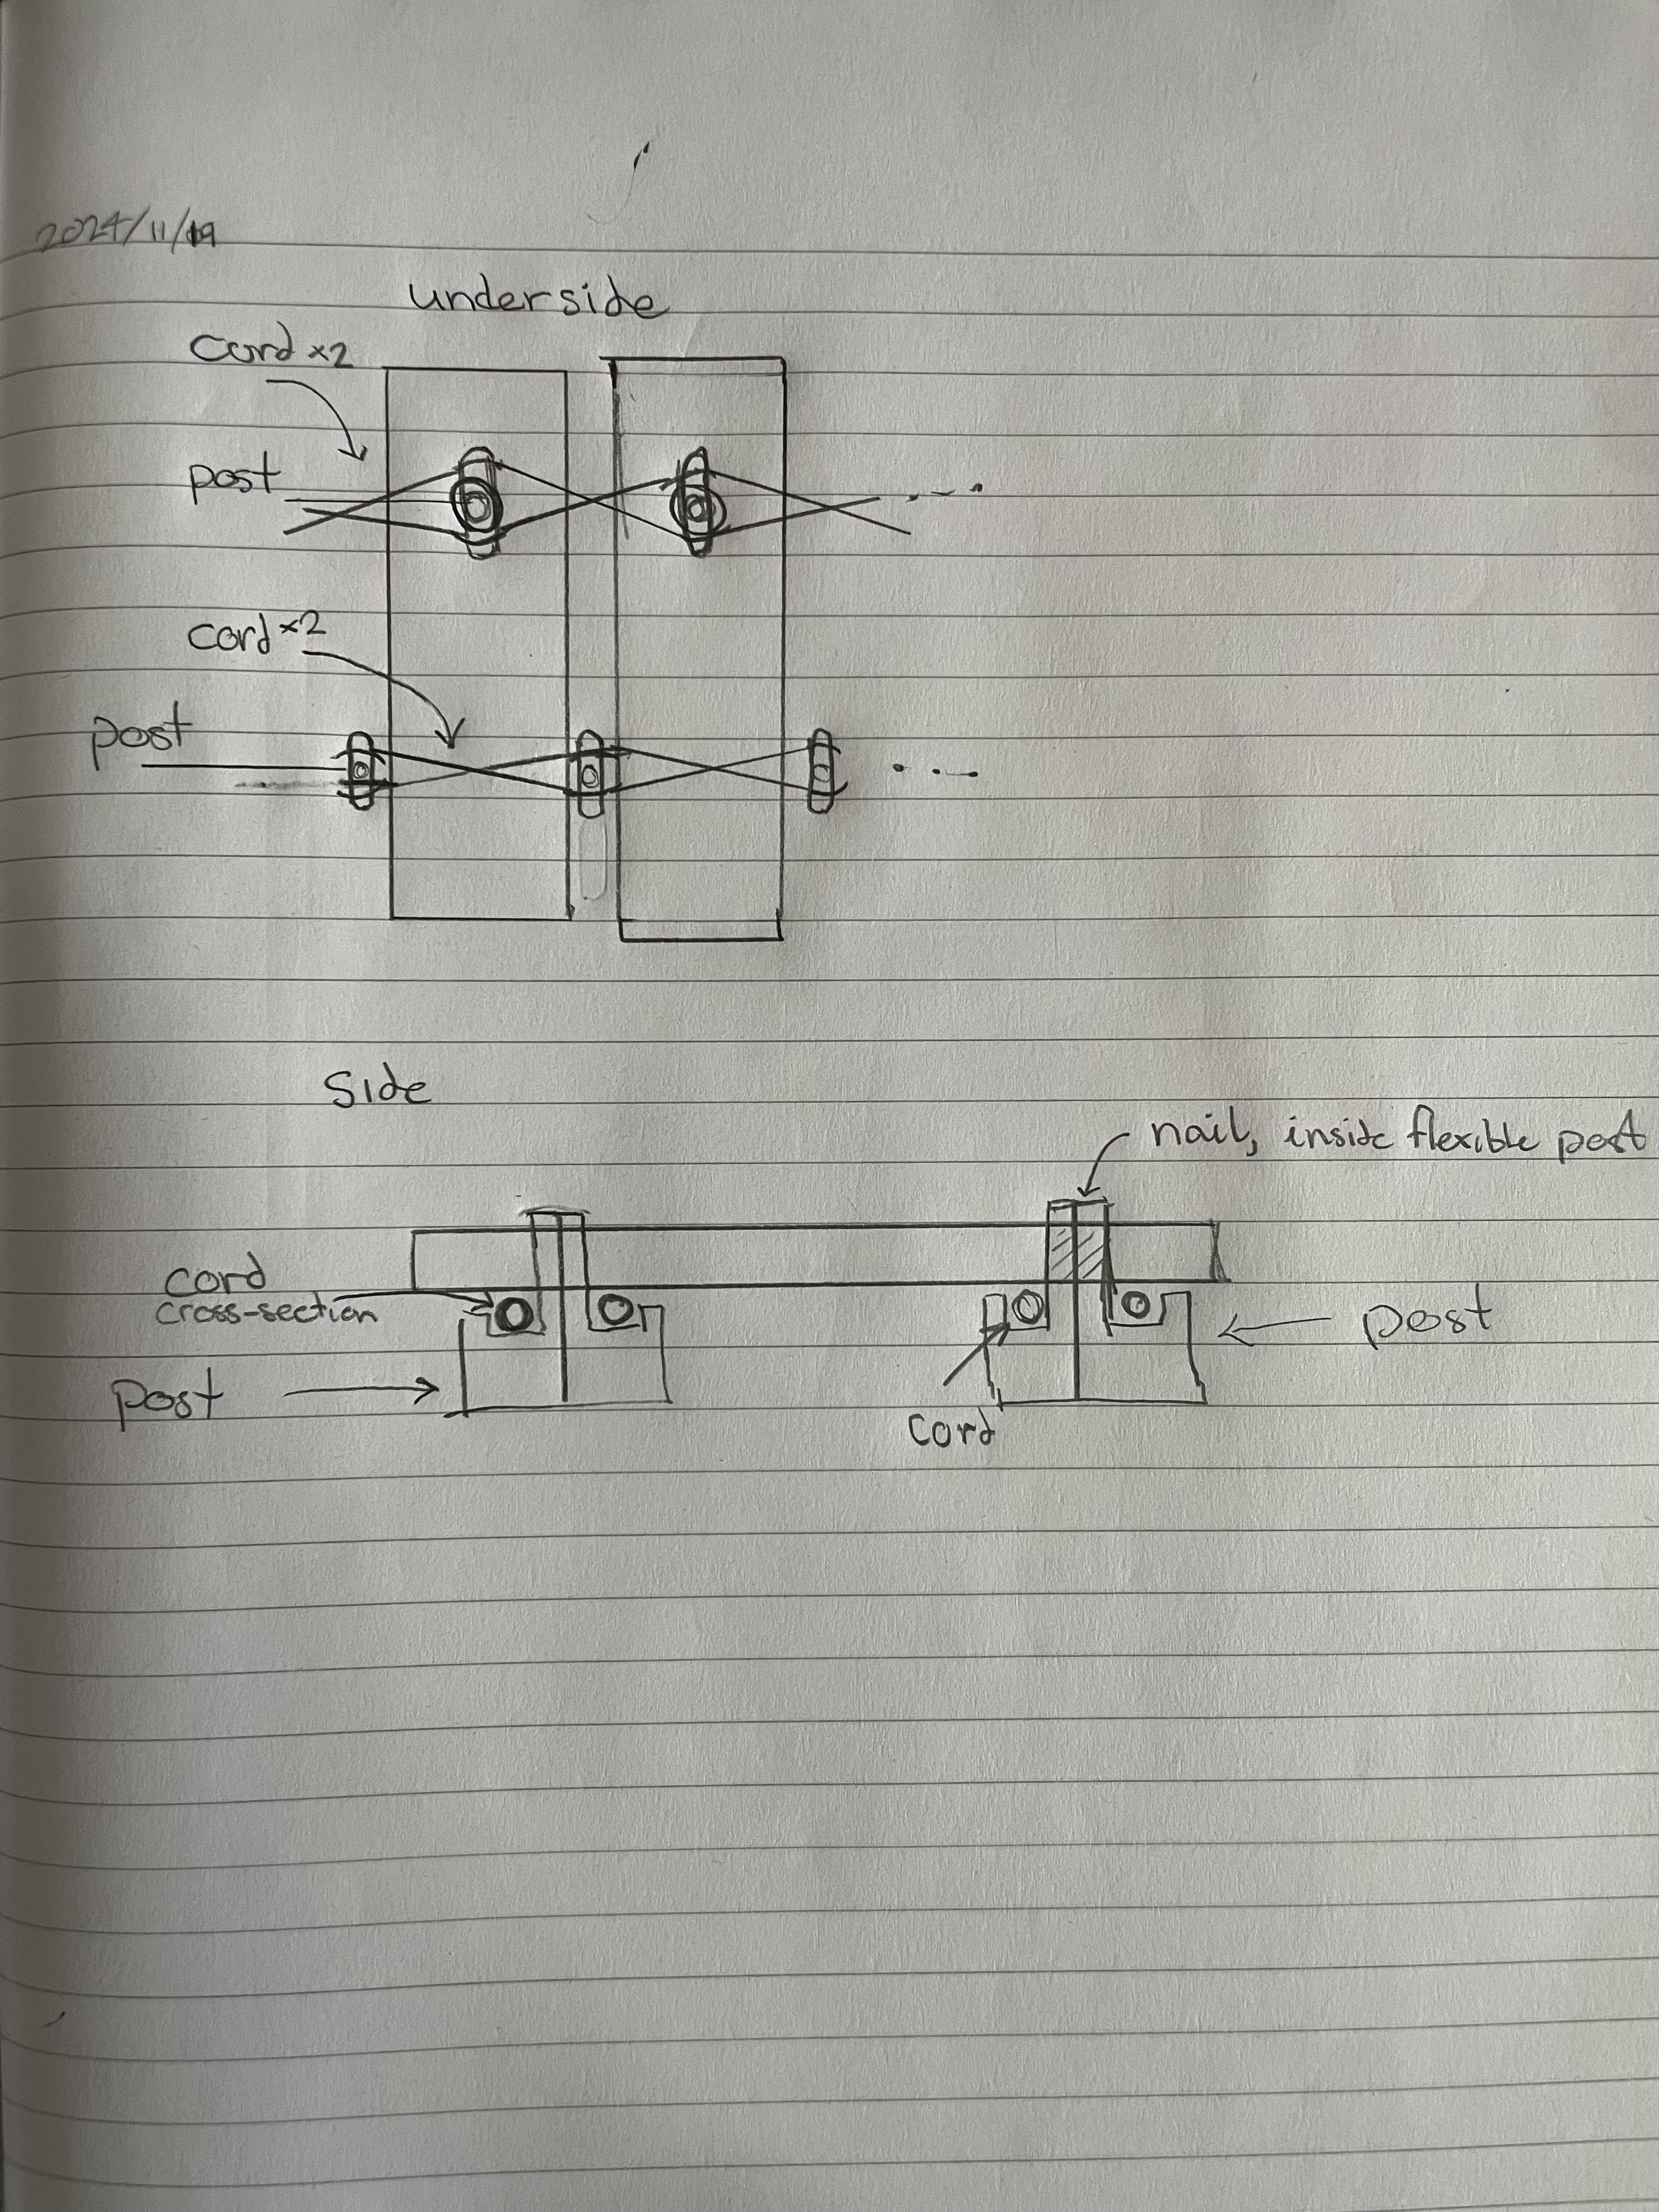 2024/11/19
underside
cord ×2
post
cord ×2
post
Side
nail, inside flexible post
cord
cross-section
post
post
cord